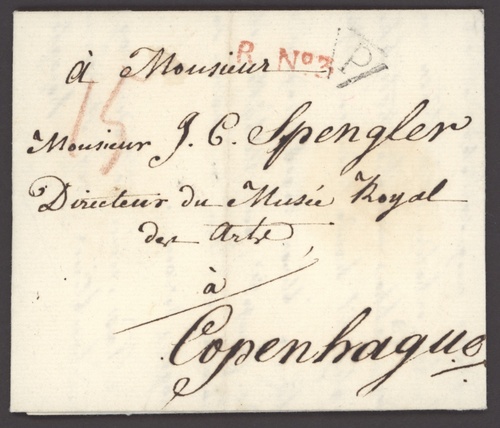 à Monsieur R. No 3 P
15
Monsieur J. C. Spengler
Directeur du Musée Royal
des Arts,
à
Copenhague